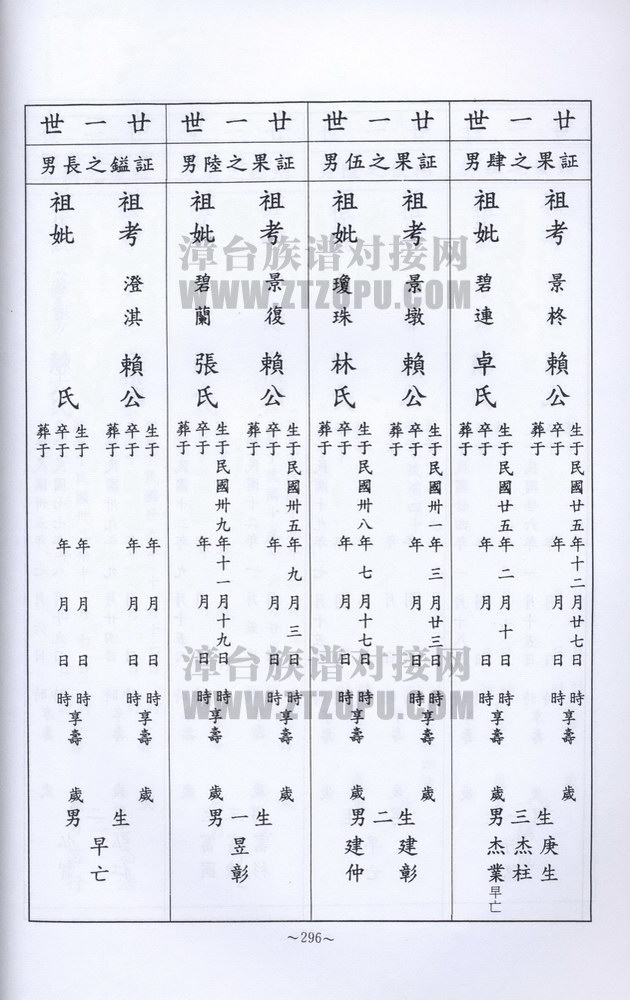 廿一世
証果之肆男
祖考 景柊 賴公
生于民國廿五年十二月廿七日 時享壽 歲
卒于 年 月 日 時
葬于
祖妣 碧連 卓氏
生于民國廿五年二月十日 時享壽 歲
卒于 年 月 日 時
葬于
生三男
庚生
杰柱
杰業早亡
廿一世
証果之伍男
祖考 景墩 賴公
生于民國卅一年三月廿三日 時享壽 歲
卒于 年 月 日 時
葬于
祖妣 瓊珠 林氏
生于民國卅八年七月十七日 時享壽 歲
卒于 年 月 日 時
葬于
生二男
建彰
建仲
廿一世
証果之陸男
祖考 景復 賴公
生于民國卅五年九月三日 時享壽 歲
卒于 年 月 日 時
葬于
祖妣 碧蘭 張氏
生于民國卅九年十一月十九日 時享壽 歲
卒于 年 月 日 時
葬于
生一男
昱彰
廿一世
証鎰之長男
祖考 澄淇 賴公
生于 年 月 日 時享壽 歲
卒于 年 月 日 時
葬于
祖妣 氏
生于 年 月 日 時享壽 歲
卒于 年 月 日 時
葬于
生男
早亡
～296～
漳台族谱对接网
WWW.ZTZUPU.COM
漳台族谱对接网
WWW.ZTZUPU.COM